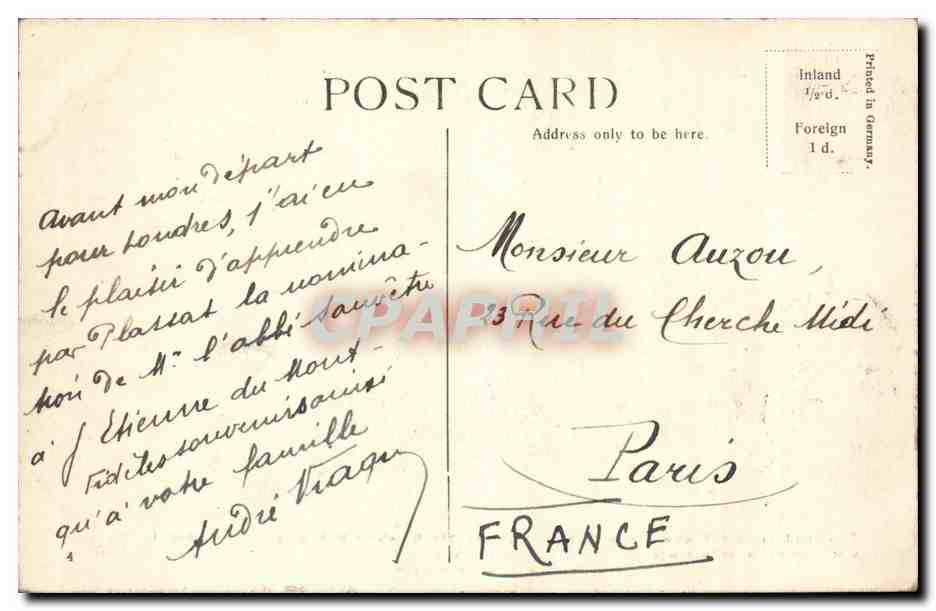 POST CARD
Address only to be here.
Inland
½ d.
Foreign
1 d.
Printed in Germany.
Avant mon départ
pour Londres, j'ai eu
le plaisir d'apprendre
par Plassat la nomina-
tion de Mr l'abbé
à St Etienne du Mont -
Fidèles souvenirs ainsi
qu'à votre famille
André
Monsieur Auzou,
23 Rue du Cherche Midi
Paris
FRANCE
CPAPHIL